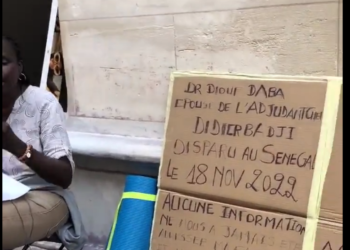 DR DIOUF DABA
EPOUSE DE L'ADJUDANT CHEF
DIDIER BADJI
DISPARU AU SENEGAL
LE 18 NOV 2022
AUCUNE INFORMATION
NE NOUS A JAMAIS